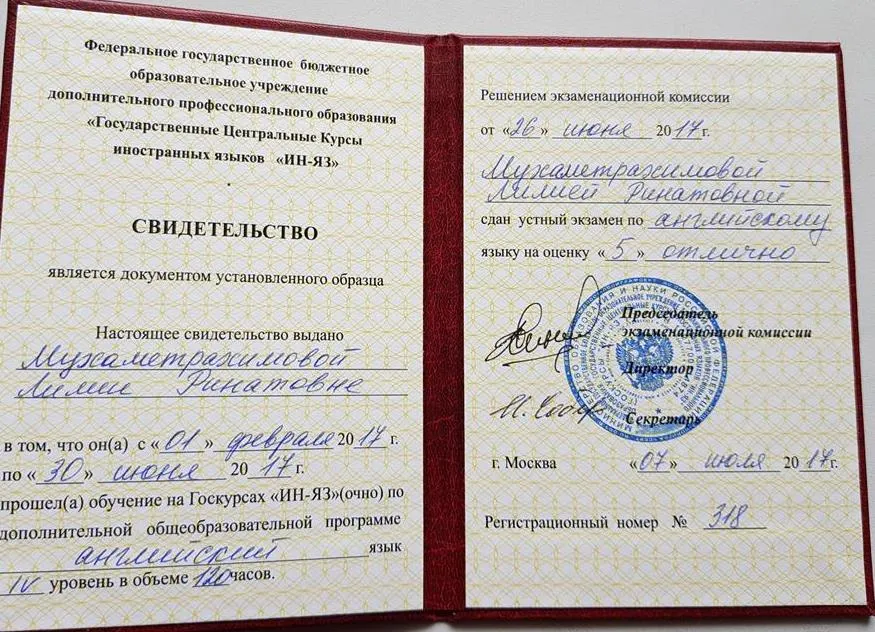 Федеральное государственное бюджетное
образовательное учреждение
дополнительного профессионального образования
«Государственные Центральные Курсы
иностранных языков «ИН-ЯЗ»
СВИДЕТЕЛЬСТВО
является документом установленного образца
Настоящее свидетельство выдано
Мухаметрахимовой
Лилии Ринатовне
в том, что он(а) с «01» февраля 2017 г.
по «30» июня 2017 г.
прошел(а) обучение на Госкурсах «ИН-ЯЗ»(очно) по
дополнительной общеобразовательной программе
английский язык
IV уровень в объеме 120 часов.
Решением экзаменационной комиссии
от «26» июня 2017 г.
Мухаметрахимовой
Лилией Ринатовной
сдан устный экзамен по английскому
языку на оценку «5» отлично
Председатель
экзаменационной комиссии
Директор
Секретарь
г. Москва «07» июля 2017 г.
Регистрационный номер № 318